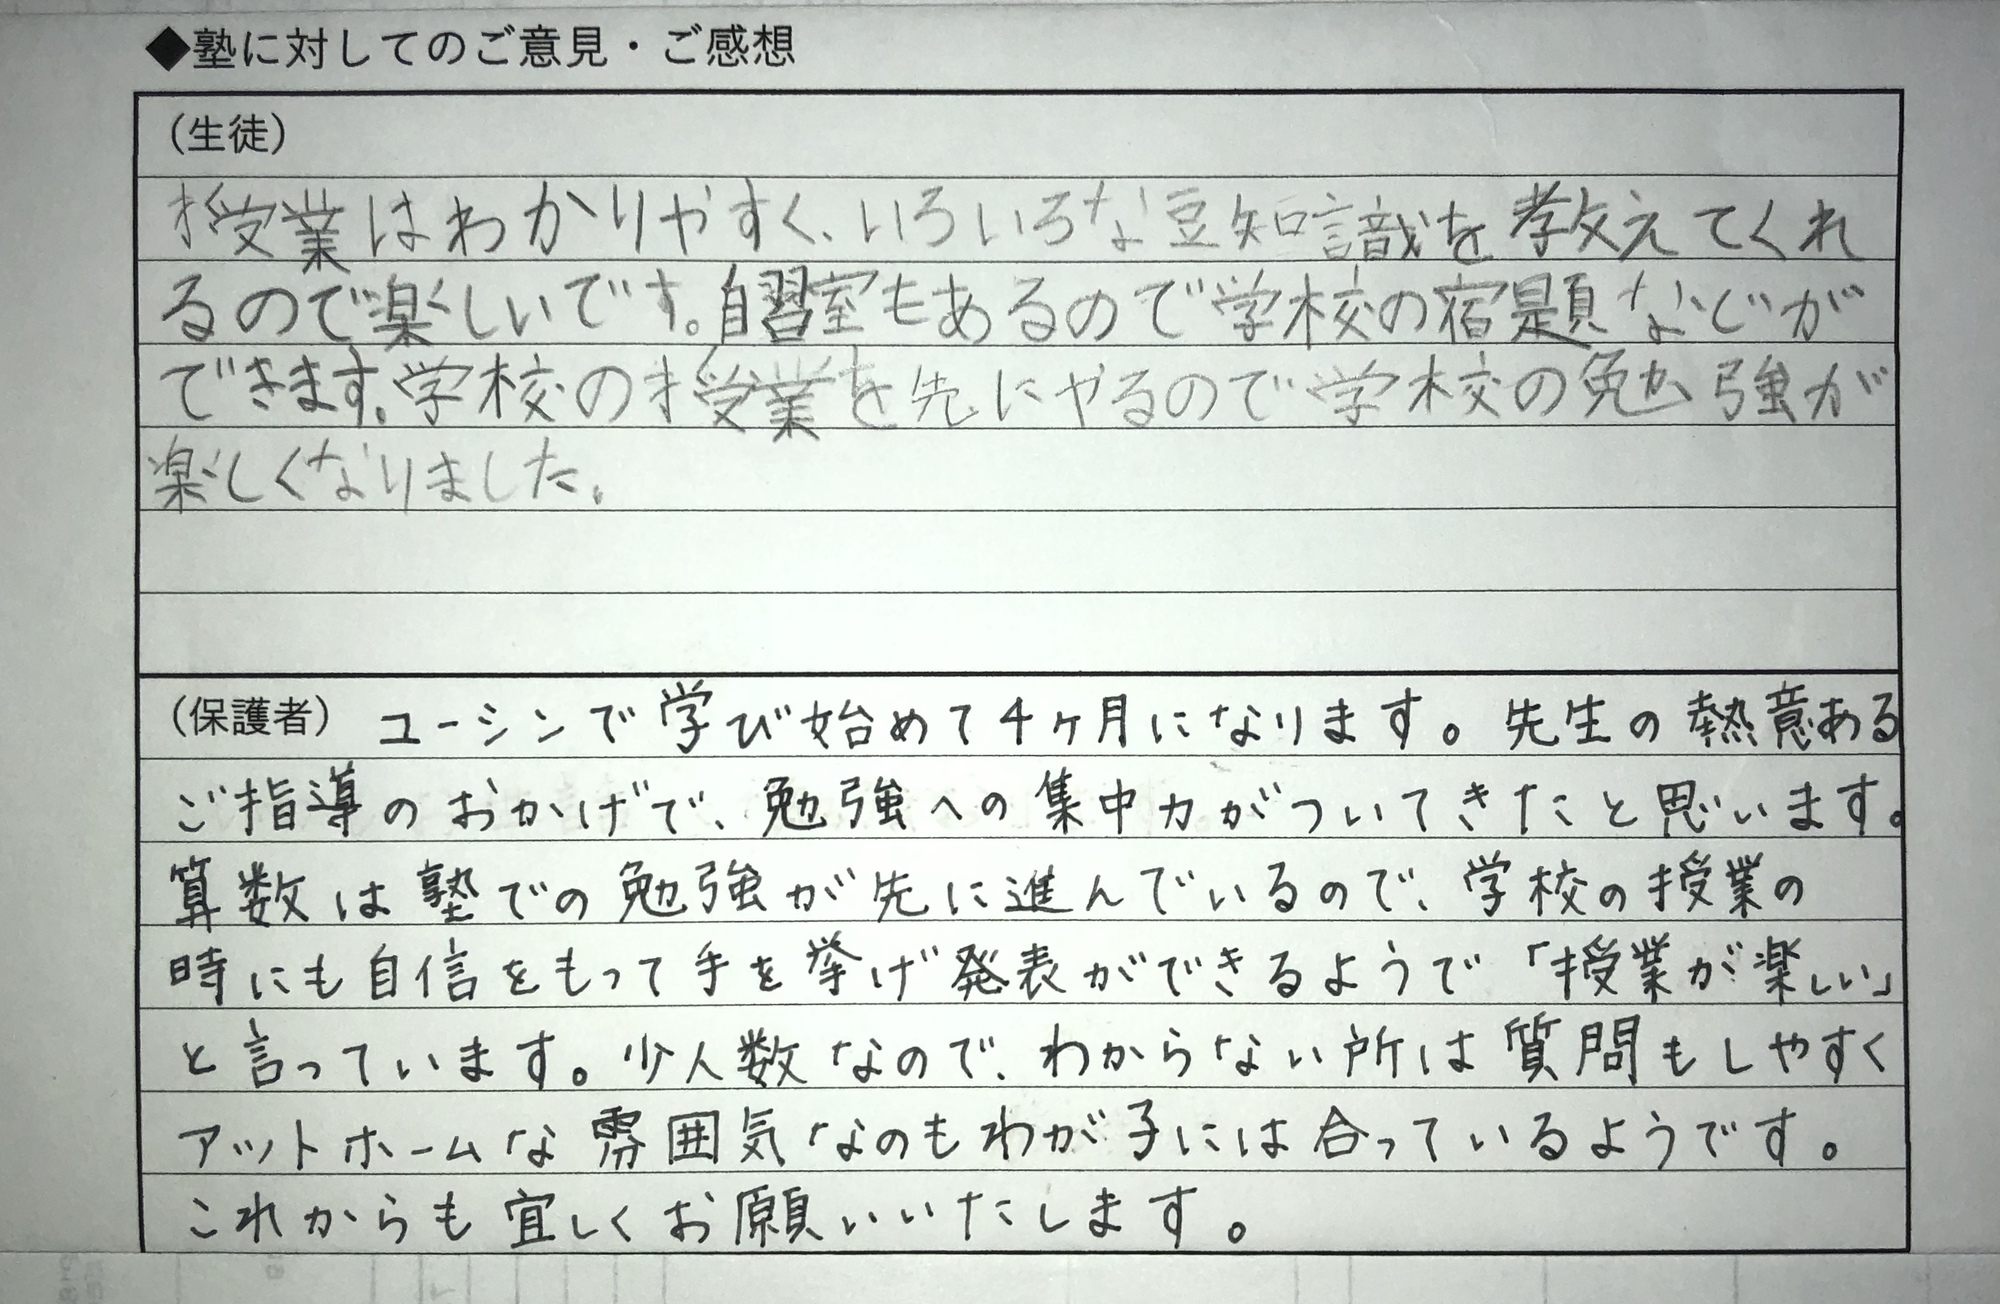 ◆塾に対してのご意見・ご感想
（生徒）
授業はわかりやすく、いろいろな豆知識を教えてくれ
るので楽しいです。自習室もあるので学校の宿題などが
できます。学校の授業を先にやるので学校の勉強が
楽しくなりました。
（保護者）ユーシンで学び始めて4ヶ月になります。先生の熱意ある
ご指導のおかげで、勉強への集中力がついてきたと思います。
算数は塾での勉強が先に進んでいるので、学校の授業の
時にも自信をもって手を挙げ発表ができるようで「授業が楽しい」
と言っています。少人数なので、わからない所は質問もしやすく
アットホームな雰囲気なのもわが子には合っているようです。
これからも宜しくお願いいたします。